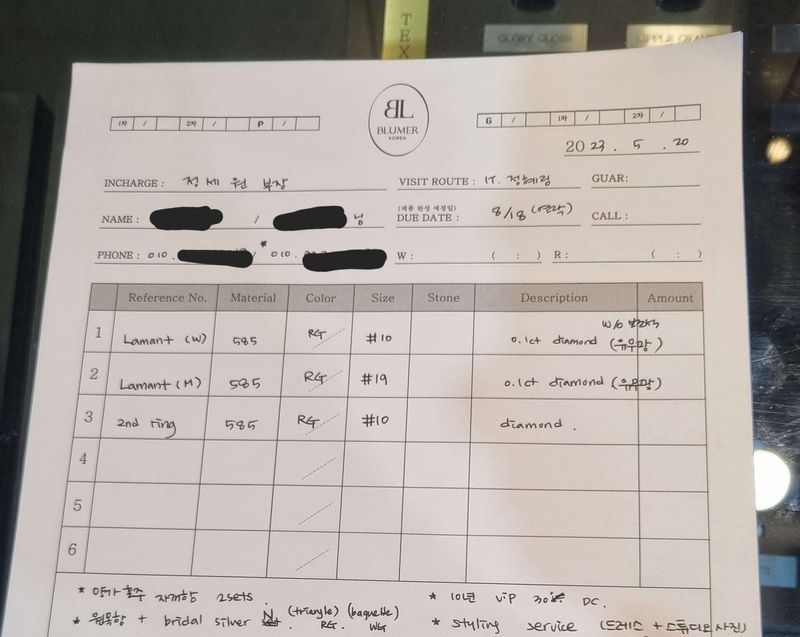 TEX
GLORY GLOSS
1차 / 2차 / P /
BL
BLUMER
KOREA
G / 1차 / 2차 /
2023 . 5 . 20
INCHARGE : 정세원 부장
VISIT ROUTE : IT. 정혜림
GUAR:
NAME : / 님
(제품 완성 예정일)
DUE DATE : 8/18 (연락)
CALL :
PHONE : 010. / * 010.
W : ( : )
R : ( : )
Reference No. Material Color Size Stone Description Amount
1 Lamant (W) 585 RG #10 0.1ct diamond (유무광)
W/O
2 Lamant (M) 585 RG #19 0.1ct diamond (유무광)
3 2nd ring 585 RG #10 diamond.
4
5
6
* 양가 혼주 자개함 2sets.
* 10년 vip 30% DC.
* 원목함 + bridal silver N (triangle) (baguette)
RG. WG
* styling service (드레스 + 스튜디오 사진)